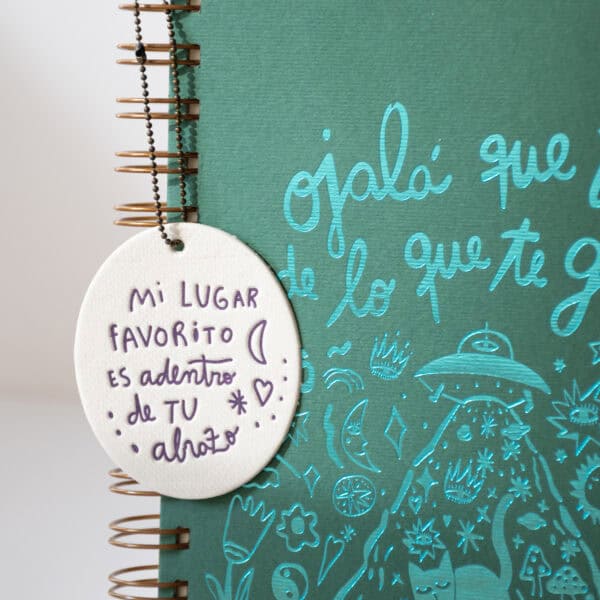 ojalá que
de lo que te
Mi LUGAR
FAVORITO
ES adentro
de TU
abrazo